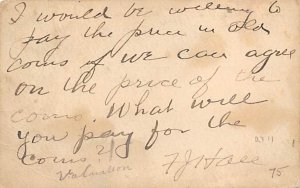 I would be willing to
pay the price in old
coins if we can agree
on the price of the
coins. What will
you pay for the
coins?
Valuation
F J Hall
75